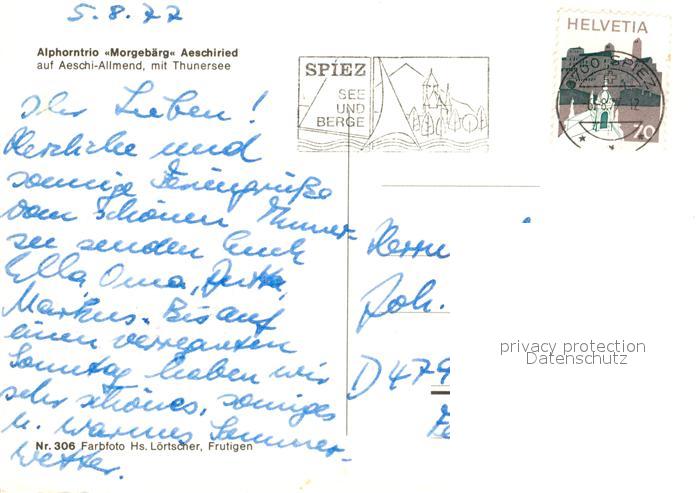 5.8.77
Alphorntrio «Morgebärg« Aeschiried
auf Aeschi-Allmend, mit Thunersee
SPIEZ
SEE
UND
BERGE
HELVETIA
3700 SPIEZ
70
Ihr Lieben!
Herzliche und
sonnige Feriengrüße
vom schönen Thuner-
see senden Euch
Ella, Oma, Jutta,
Markus. Bis auf
einen verregneten
Sonntag haben wir
sehr schönes, sonniges
u. warmes Sommer-
wetter.
Herrn
Joh.
D 479
privacy protection
Datenschutz
Nr. 306 Farbfoto Hs. Lörtscher, Frutigen